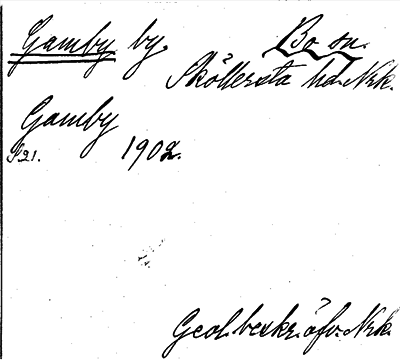 Gamby by. Bo sn.
Sköllersta hd. Nrk.
Gamby
S 21. 1902.
Geol. beskr. öfv. Nrk.